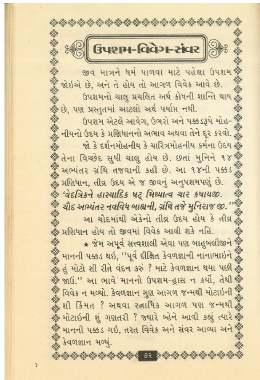 ઉપશમ-વિવેગ-સંવર
જીવ માત્રને ધર્મ પાળવા માટે પહેલા ઉપશમ
જોઇએ છે, અને તે હોય તો આગળ વિવેક આવે છે.
ઉપશમનો ચાલુ પ્રચલિત અર્થ ક્રોધની શાન્તિ થાય
છે, પણ પ્રસ્તુતમાં આટલો અર્થ પર્યાપ્ત નથી.
ઉપશમ એટલે આવેગ, ઉભરો અને પક્કડરૂપે મોહ-
નીયનો ઉદય કે પ્રણિધાનનો અભાવ અથવા તેને દૂર કરવો.
જો કે દર્શનમોહનીય કે ચારિત્રમોહનીય કર્મના ઉદય
તેના વિચ્છેદ સુધી ચાલુ હોય છે. છતાં મુનિને ૧૪
અભ્યંતર ગ્રંથિ તજવાની કહી છે. આ ૧૪ની પક્કડ
પ્રણિધાન, તીવ્ર ઉદય એ જ જીવનું અનુપશમપણું છે.
'વેદત્રિકને હાસ્યાદિક ષટ્ મિથ્યાત્વ ચાર કષાયજી.
ચૌદ અભ્યંતર નવવિધ બાહ્યની, ગ્રંથિ તજે મુનિરાજ જી."
આ ચૌદમાંથી એકેનો તીવ્ર ઉદય હોય કે તીવ્ર
પ્રણિધાન હોય તો જીવમાં વિવેક આવી શકે નહિ.
★ જેમ અપૂર્વ સત્ત્વશાલી એવા પણ બાહુબલીજીને
માનની પક્કડ થઇ, "પૂર્વ દીક્ષિત કેવળજ્ઞાની નાનાભાઇને
હું મોટો શી રીતે વંદન કરું ? માટે કેવળજ્ઞાન થયા પછી
જાઉં." આ ભાવે માનનો ઉપશમ-હ્રાસ ન કર્યો, તેથી
વિવેક ન મળ્યો. કેવળજ્ઞાન ગુણ આગળ જન્મથી મોટાઇની
શી કિંમત ? અથવા રત્નાધિક આગળ પણ જન્મથી
મોટાઇની શું ગણતરી ? જ્યારે બ્હેને આવી કહ્યું ત્યારે
માનની પક્કડ ગઇ, તરત વિવેક અને સંવર આવ્યા અને
કેવળજ્ઞાન મળ્યું.